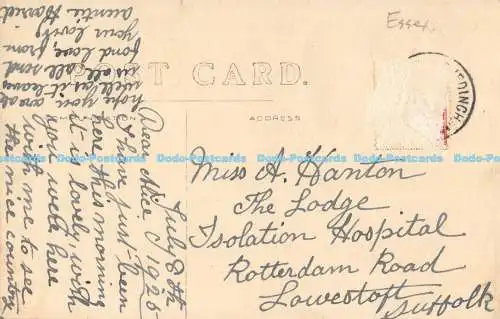 Essex
POST CARD.
ADDRESS
Miss A. Hanton
The Lodge
Isolation Hospital
Rotterdam Road
Lowestoft
Suffolk
July 8th
1925
Dear Alice
I have just been
here this morning
it is lovely, wish
you were here
with me to see
the nice country
hope you are as
well as it leaves
us all. all send
fond love, from
your lovely
auntie Harried
Dodo-Postcards Dodo-Postcards Dodo-Postcards Dodo-Postcards Dodo-Postcards Dodo-Postcards